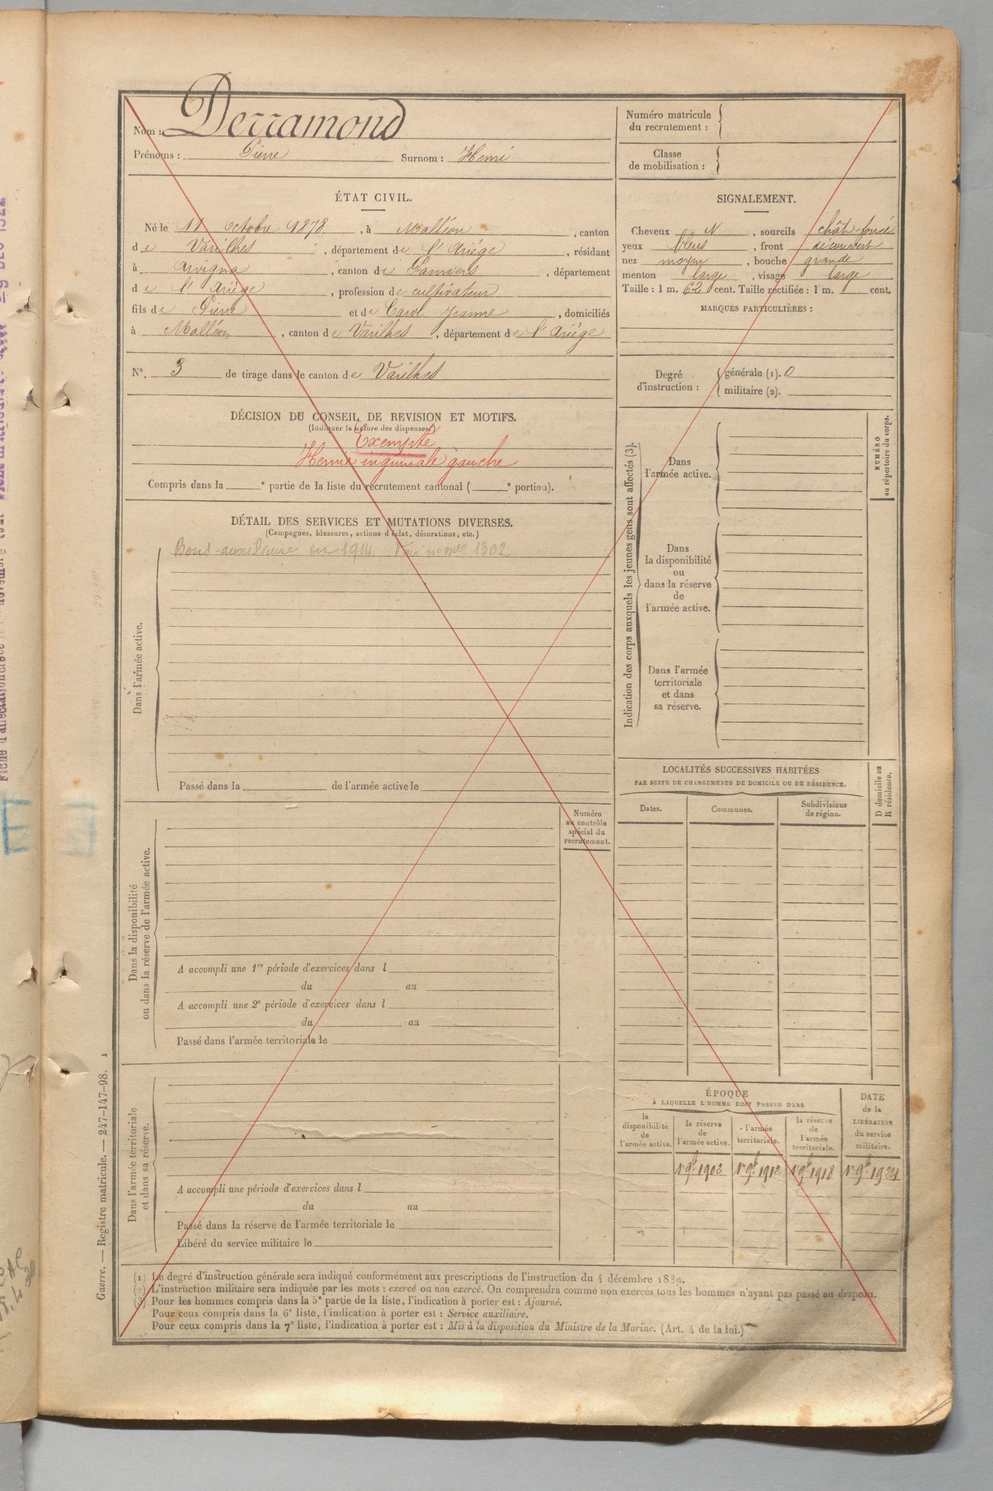 Nom : Derramond
Prénoms : Pierre Surnom : Henri
Numéro matricule
du recrutement :
Classe
de mobilisation :
ÉTAT CIVIL.
Né le 11 octobre 1878, à Malléon, canton
de Varilhes, département de l'Ariège, résidant
à Arvigna, canton de Pamiers, département
de l'Ariège, profession de cultivateur
fils de Pierre et de Carol Jeanne, domiciliés
à Malléon, canton de Varilhes, département de l'Ariège
N°. 3 de tirage dans le canton de Varilhes
SIGNALEMENT.
Cheveux N, sourcils chât foncé
yeux bleus, front découvert
nez moyen, bouche grande
menton large, visage large
Taille : 1 m. 62 cent. Taille rectifiée : 1 m. cent.
MARQUES PARTICULIÈRES :
Degré
d'instruction :
générale (1). 0
militaire (2).
DÉCISION DU CONSEIL DE REVISION ET MOTIFS.
(Indiquer la nature des dispenses)
Exempté
Hernie inguinale gauche
Compris dans la e partie de la liste du recrutement cantonal ( e portion).
DÉTAIL DES SERVICES ET MUTATIONS DIVERSES.
(Campagnes, blessures, actions d'éclat, décorations, etc.)
en 1914. 1902
Dans l'armée active.
Passé dans la de l'armée active le
Indication des corps auxquels les jeunes gens sont affectés (3).
Dans
l'armée active.
Dans
la disponibilité
ou
dans la réserve
de
l'armée active.
Dans l'armée
territoriale
et dans
sa réserve.
NUMÉRO
au répertoire du corps.
LOCALITÉS SUCCESSIVES HABITÉES
PAR SUITE DE CHANGEMENTS DE DOMICILE OU DE RÉSIDENCE.
Dates.
Communes.
Subdivisions
de région.
D domicile ou
R résidence.
Numéro
au contrôle
spécial du
recrutement.
Dans la disponibilité
ou dans la réserve de l'armée active.
A accompli une 1re période d'exercices dans l
du au
A accompli une 2e période d'exercices dans l
du au
Passé dans l'armée territoriale le
Dans l'armée territoriale
et dans sa réserve.
A accompli une période d'exercices dans l
du au
Passé dans la réserve de l'armée territoriale le
Libéré du service militaire le
ÉPOQUE
À LAQUELLE L'HOMME DOIT PASSER DANS
la
disponibilité
de
l'armée active.
la réserve
de
l'armée active.
l'armée
territoriale.
la réserve
de
l'armée
territoriale.
DATE
de la
LIBÉRATION
du service
militaire.
1er 9bre 1902 1er 9bre 1912 1er 9bre 1918 1er 9bre 1924
Guerre. — Registre matricule. — 247-147-98. 1
(1) Le degré d'instruction générale sera indiqué conformément aux prescriptions de l'instruction du 4 décembre 1889.
(2) L'instruction militaire sera indiquée par les mots : exercé ou non exercé. On comprendra comme non exercés tous les hommes n'ayant pas passé au drapeau.
(3) Pour les hommes compris dans la 5e partie de la liste, l'indication à porter est : Ajourné.
Pour ceux compris dans la 6e liste, l'indication à porter est : Service auxiliaire.
Pour ceux compris dans la 7e liste, l'indication à porter est : Mis à la disposition du Ministre de la Marine. (Art. 4 de la loi.)